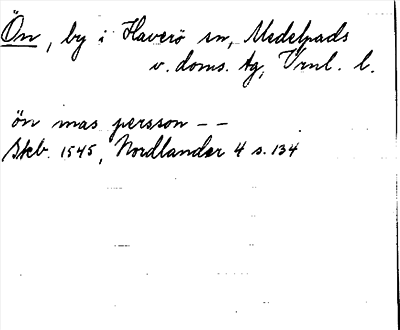 Ön, by i Haverö sn, Medelpads
v. doms. tg, Vrnl. l.
ön mas persson – –
Skb. 1545, Nordlander 4 s. 134